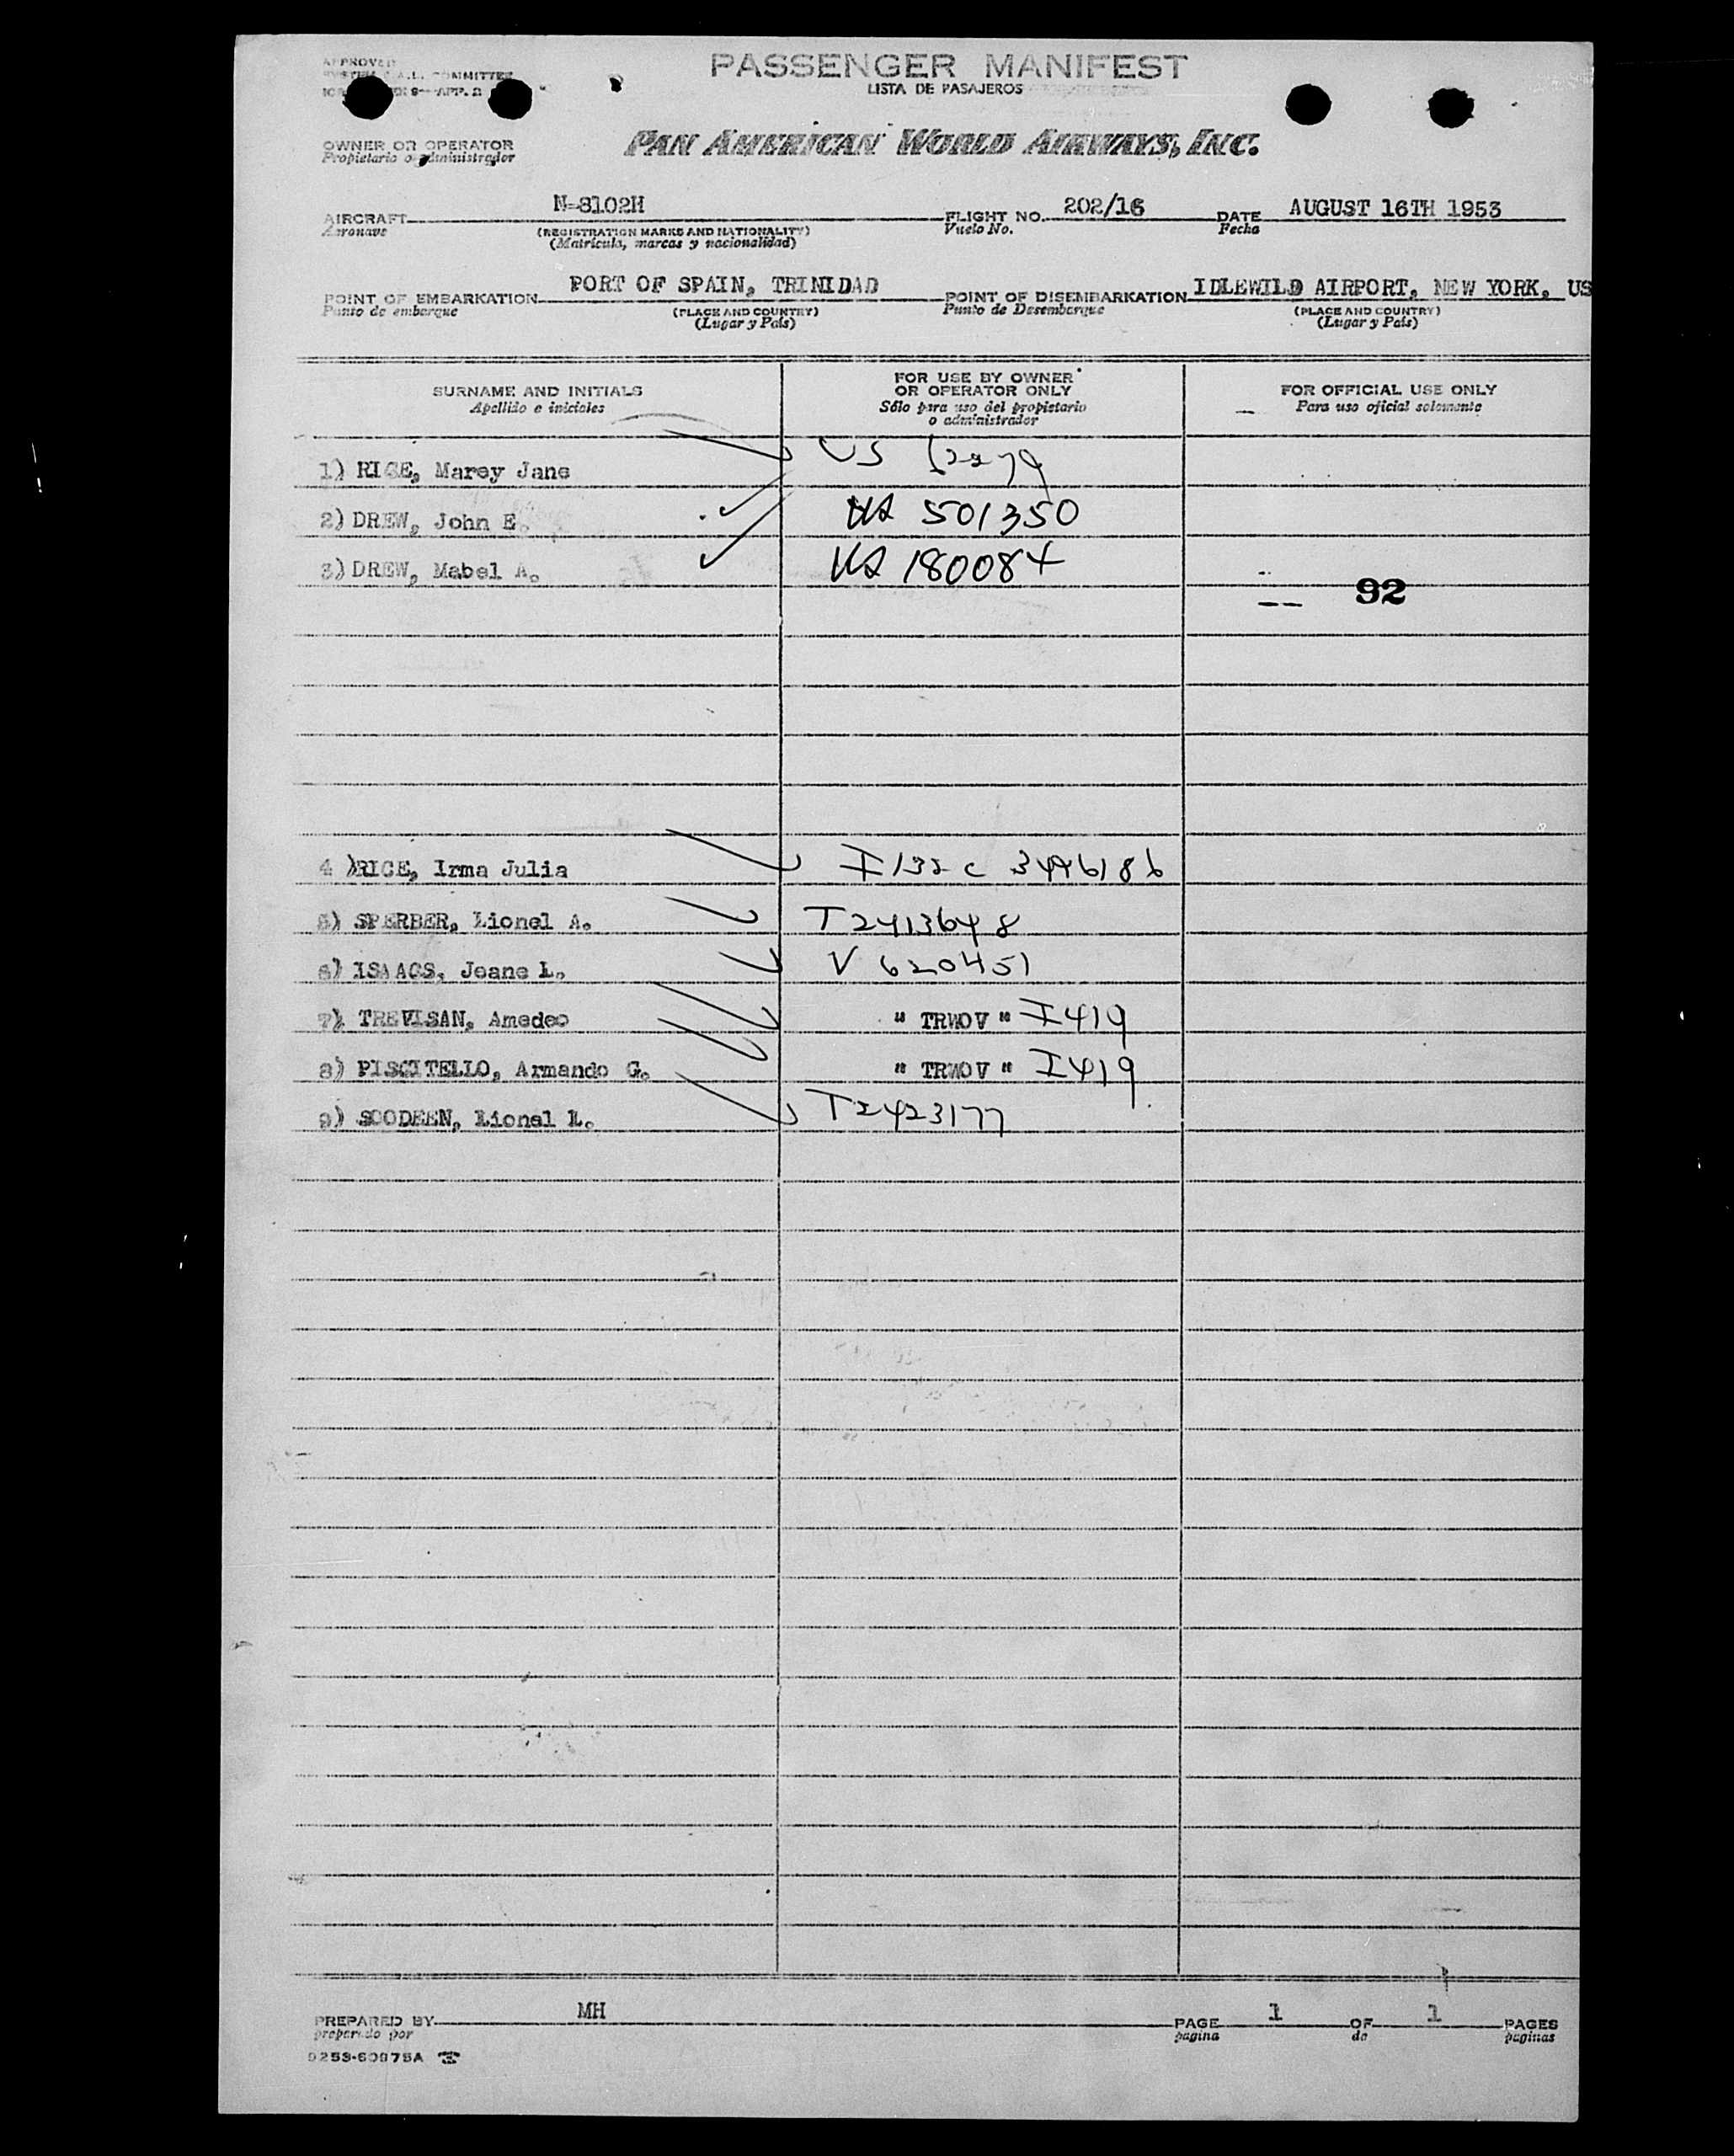 APPROVED
PASSENGER MANIFEST
LISTA DE PASAJEROS
PAN AMERICAN WORLD AIRWAYS, INC.
OWNER OR OPERATOR
Propietario o administrador
AIRCRAFT N-8102H FLIGHT NO. 202/16 DATE AUGUST 16TH 1953
Aeronave (REGISTRATION MARKS AND NATIONALITY) Vuelo No. Fecha
(Matrícula, marcas y nacionalidad)
POINT OF EMBARKATION PORT OF SPAIN, TRINIDAD POINT OF DISEMBARKATION IDLEWILD AIRPORT, NEW YORK, US
Punto de embarque (PLACE AND COUNTRY) Punto de Desembarque (PLACE AND COUNTRY)
(Lugar y País) (Lugar y País)
SURNAME AND INITIALS FOR USE BY OWNER OR OPERATOR ONLY FOR OFFICIAL USE ONLY
Apellido e iniciales Sólo para uso del propietario o administrador Para uso oficial solamente
1) RICE, Marey Jane US
2) DREW, John E. US 501350
3) DREW, Mabel A. US 180084
92
4) RICE, Irma Julia I132 C
5) SPERBER, Lionel A. T2413648
6) ISAACS, Jeane L. V 620451
7) TREVISAN, Amedeo " TRWOV " I419
8) PISCITELLO, Armando G. " TRWOV " I419
9) SOODEEN, Lionel L. T2423177
PREPARED BY MH PAGE 1 OF 1 PAGES
preparado por página de páginas